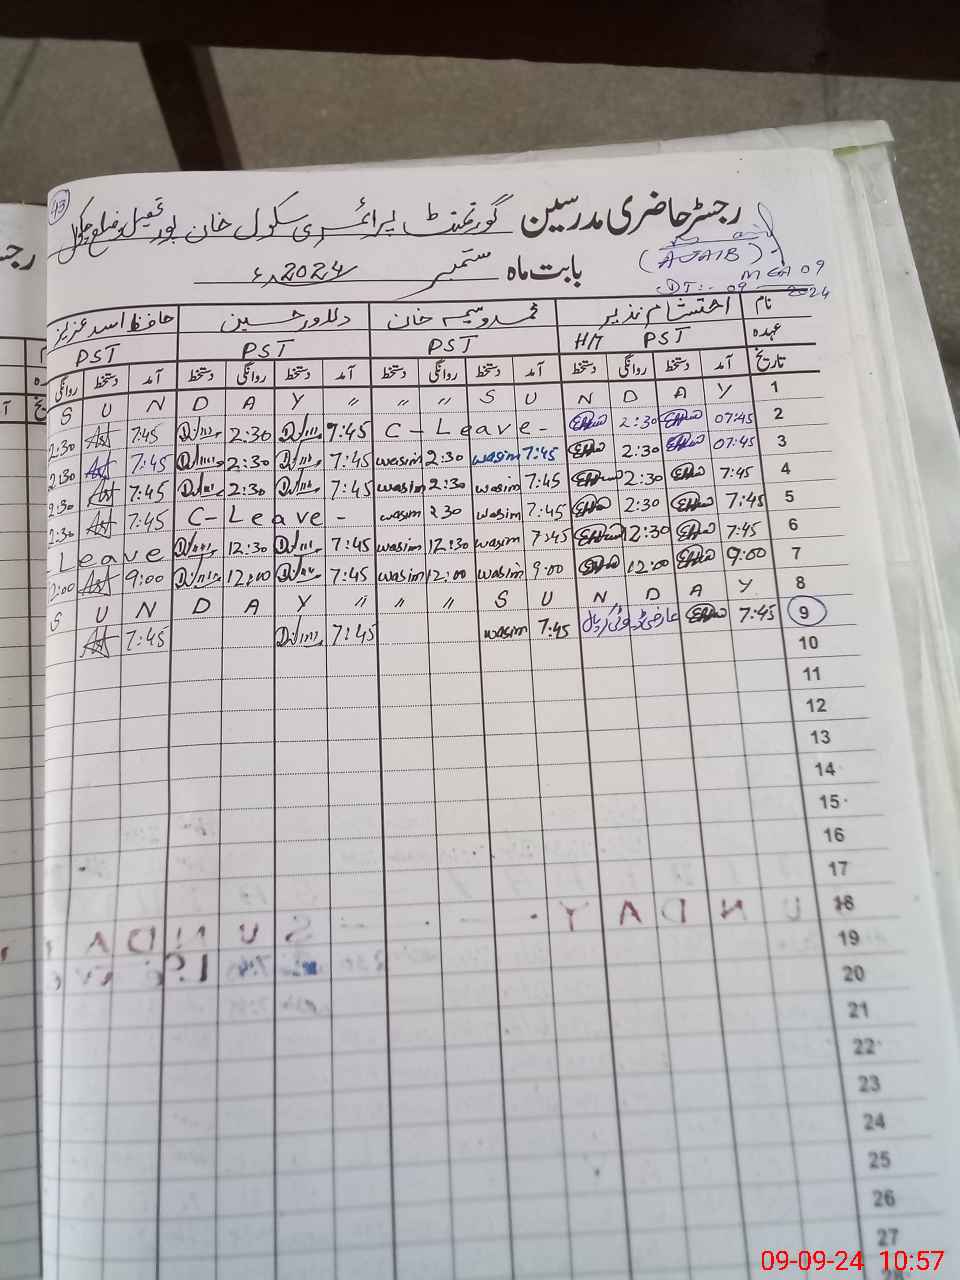 93
رجسٹر حاضری مدرسین گورنمنٹ پرائمری سکول خان پور تحصیل و ضلع چکوال
(AJAIB)
MEA 09
بابت ماہ ستمبر 2024ء
DT:- 09 2024
نام احتشام نذیر محمد وسیم خان دلاور حسین حافظ اسد عزیز
عہدہ PST H/T PST PST PST
تاریخ آمد دستخط روانگی دستخط آمد دستخط روانگی دستخط آمد دستخط روانگی دستخط آمد دستخط روانگی
S U N D A Y " " " S U N D A Y 1
2:30 7:45 2:30 7:45 C-Leave- 2:30 07:45 2
2:30 7:45 2:30 7:45 wasim 2:30 wasim 7:45 2:30 07:45 3
2:30 7:45 2:30 7:45 wasim 2:30 wasim 7:45 2:30 7:45 4
2:30 7:45 C-Leave- wasim 2 30 wasim 7:45 2:30 7:45 5
Leave 12:30 7:45 wasim 12:30 wasim 7:45 12:30 7:45 6
9:00 12:00 7:45 wasim 12:00 wasim 9:00 12:00 9:00 7
S U N D A Y " " " S U N D A Y 8
7:45 7:45 wasim 7:45 عارضی ڈیوٹی 7:45 9
10
11
12
13
14
15
16
17
18
19
20
21
22
23
24
25
26
27
28
09-09-24 10:57